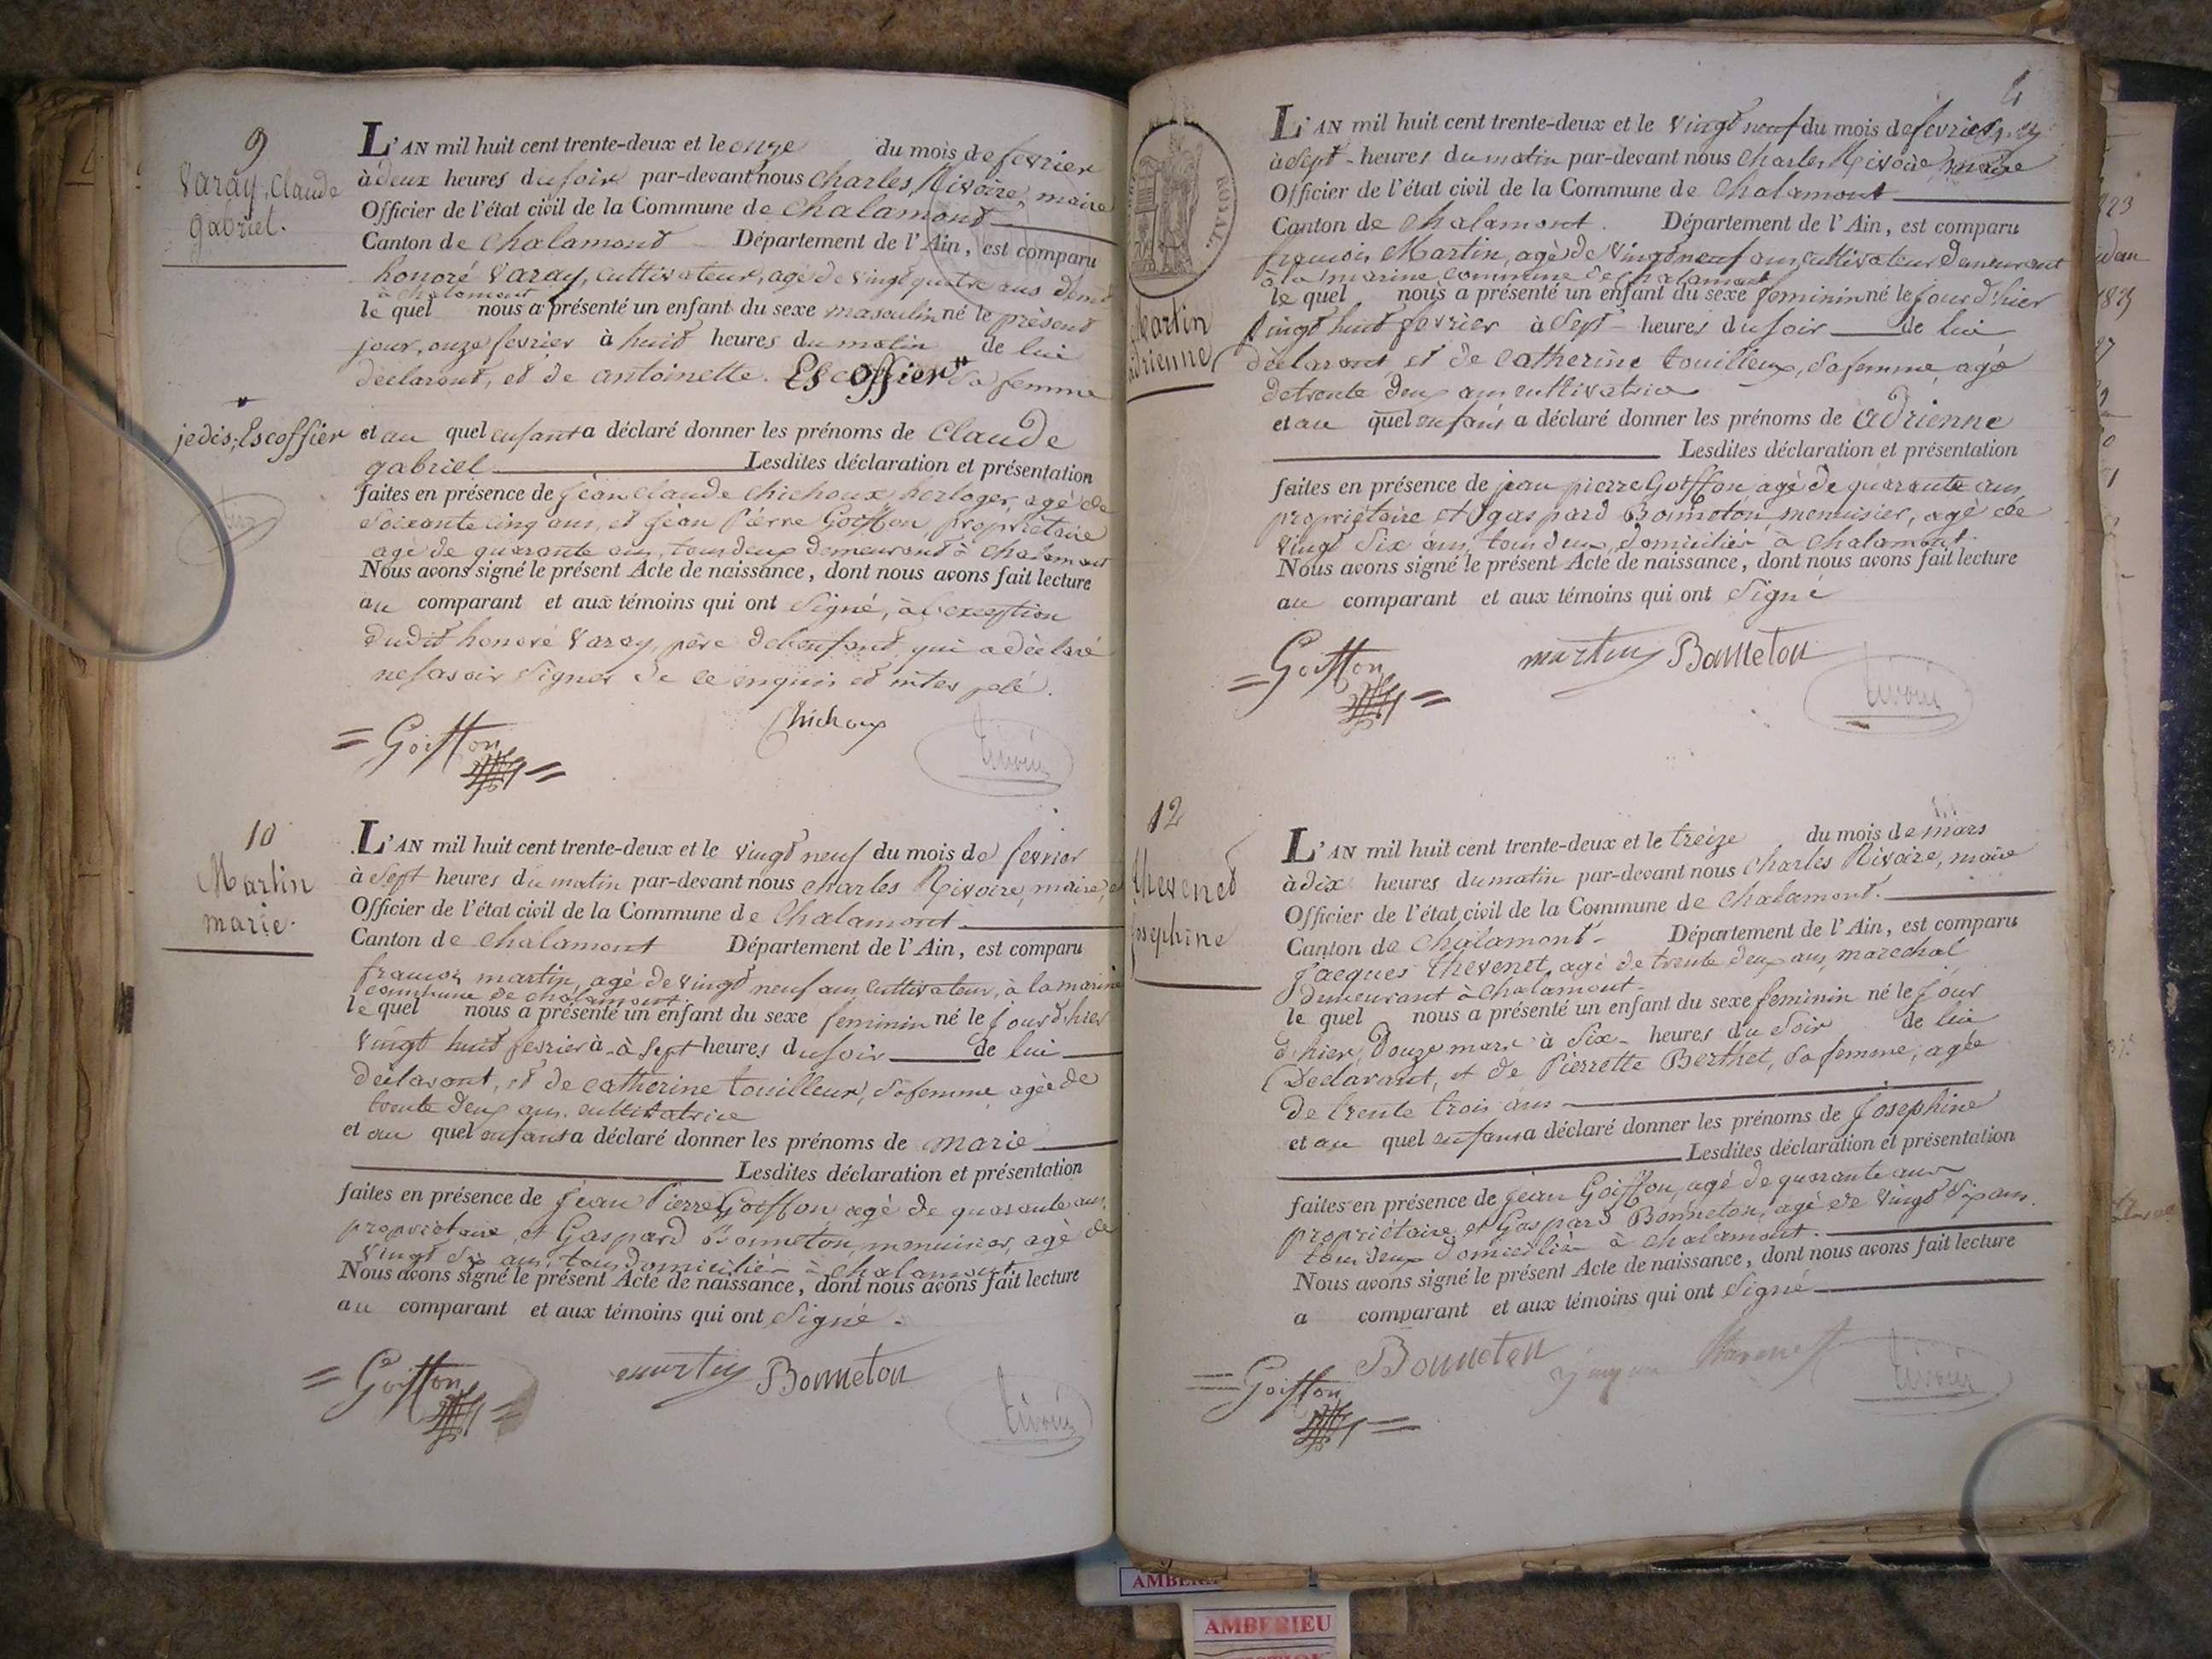 9
Varay, Claude
gabriel.
L'AN mil huit cent trente-deux et le onze du mois de fevrier
à deux heures du soir par-devant nous Charles Rivoire, maire
Officier de l'état civil de la Commune de Chalamont
Canton de Chalamont Département de l'Ain, est comparu
honoré Varay, cultivateur, agé de vingt quatre ans dem.t
à chalamont
le quel nous a présenté un enfant du sexe masculin né le présent
jour, onze fevrier à huit heures du matin de lui
déclarant, et de antoinette. Escoffier sa femme
jedis; Escoffier
et au quel enfant a déclaré donner les prénoms de Claude
gabriel Lesdites déclaration et présentation
faites en présence de jean claude chichoux horloger, agé de
soixante cinq ans, et jean Pierre Goiffon, propriétaire
agé de quarante ans, tous deux demeurant à chalamont
Nous avons signé le présent Acte de naissance, dont nous avons fait lecture
au comparant et aux témoins qui ont signé, à l'exception
dudit honoré Varay, père de l'enfant, qui a déclaré
ne savoir signer de ce enquis et inter pelé.
= Goiffon =
Chichoux
Rivoire
10
Martin
marie.
L'AN mil huit cent trente-deux et le vingt neuf du mois de fevrier
à sept heures du matin par-devant nous Charles Rivoire, maire, et
Officier de l'état civil de la Commune de Chalamont
Canton de chalamont Département de l'Ain, est comparu
francois martin, agé de vingt neuf ans cultivateur, à la marine
commune de chalamont
le quel nous a présenté un enfant du sexe feminin né le jour d'hier
vingt huit fevrier à à sept heures du soir de lui
déclarant, et de catherine touilleux, sa femme agée de
trente deux ans. cultivatrice
et au quel enfant a déclaré donner les prénoms de marie
Lesdites déclaration et présentation
faites en présence de jean Pierre Goiffon agé de quarante ans,
propriétaire, et Gaspard Bonneton, menuisier, agé de
vingt six ans, tous domiciliés à chalamont
Nous avons signé le présent Acte de naissance, dont nous avons fait lecture
au comparant et aux témoins qui ont signé.
= Goiffon =
martin
Bonneton
Rivoire
4
ROYAL.
Martin
adrienne
L'AN mil huit cent trente-deux et le vingt neuf du mois de fevrier
à sept heures du matin par-devant nous Charles Rivoire maire
Officier de l'état civil de la Commune de Chalamont
Canton de chalamont. Département de l'Ain, est comparu
francois Martin, agé de vingt neuf ans cultivateur demeurant
à la marine commune de chalamont
le quel nous a présenté un enfant du sexe feminin né le jour d'hier
vingt huit fevrier à sept heures du soir de lui
déclarant et de catherine touilleux, sa femme, agé
de trente deux ans cultivatrice
et au quel enfant a déclaré donner les prénoms de adrienne
Lesdites déclaration et présentation
faites en présence de jean pierre Goiffon agé de quarante ans
propriétaire et gaspard Bonneton, menuisier, agé de
vingt six ans, tous deux domiciliés à chalamont.
Nous avons signé le présent Acte de naissance, dont nous avons fait lecture
au comparant et aux témoins qui ont signé
= Goiffon =
martin
Bonneton
Rivoire
12
thevenet
josephine
L'AN mil huit cent trente-deux et le treize du mois de mars
à dix heures du matin par-devant nous Charles Rivoire, maire
Officier de l'état civil de la Commune de Chalamont.
Canton de Chalamont Département de l'Ain, est comparu
jacques thevenet, agé de trente deux ans, marechal
demeurant à chalamont
le quel nous a présenté un enfant du sexe feminin né le jour
d'hier, douze mars à six heures du soir de lui
Declarant, et de Pierrette Berthet, sa femme, agée
de trente trois ans
et au quel enfant a déclaré donner les prénoms de josephine
Lesdites déclaration et présentation
faites en présence de jean Goiffon, agé de quarante ans
propriétaire et Gaspard Bonneton, agé de vingt six ans.
tous deux domiciliés à chalamont.
Nous avons signé le présent Acte de naissance, dont nous avons fait lecture
a comparant et aux témoins qui ont signé
= Goiffon =
Bonneton
thevenet
Rivoire
AMBERIEU